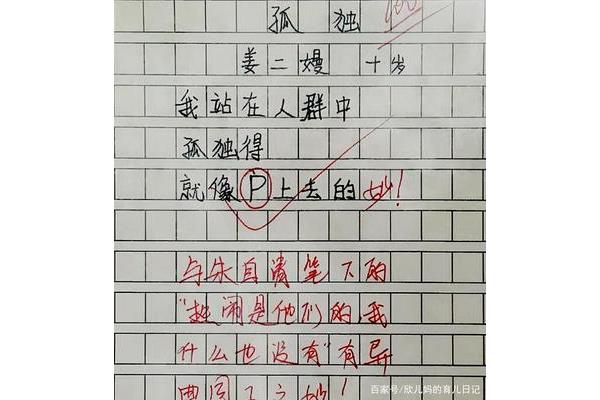 孤独
姜二嫚 十岁
我站在人群中
孤独得
就像P上去的 妙!
与朱自清笔下的
"热闹是他们的,我
什么也没有"有异
曲同工之妙!
百家号/欣儿妈的育儿日记